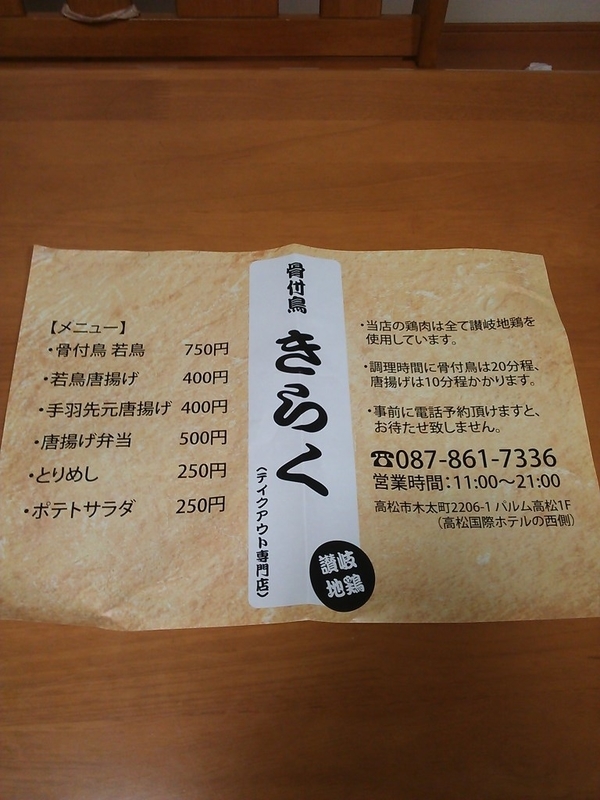 【メニュー】
・骨付鳥 若鳥 750円
・若鳥唐揚げ 400円
・手羽先元唐揚げ 400円
・唐揚げ弁当 500円
・とりめし 250円
・ポテトサラダ 250円
骨付鳥
きらく
(テイクアウト専門店)
讃岐
地鶏
・当店の鶏肉は全て讃岐地鶏を
使用しています。
・調理時間に骨付鳥は20分程、
唐揚げは10分程かかります。
・事前に電話予約頂けますと、
お待たせ致しません。
☎087-861-7336
営業時間：11:00〜21:00
高松市木太町2206-1 パルム高松1F
（高松国際ホテルの西側）